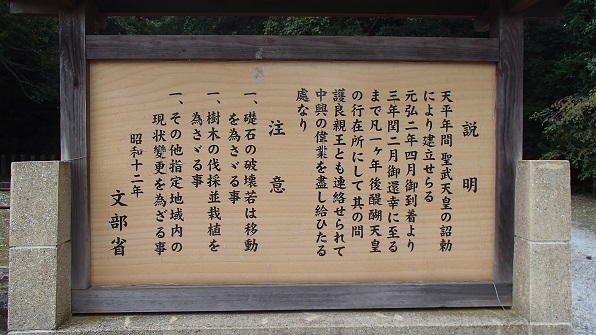 説明
天平年間 聖武天皇の詔勅
により建立せらる
元弘二年四月御到着より
三年閏二月御還幸に至る
まで凡一ヶ年後醍醐天皇
の行在所にして其の間
護良親王とも連絡せられて
中興の偉業を盡し給ひたる
處なり
注意
一、礎石の破壊若は移動
を為さゞる事
一、樹木の伐採並栽植を
為さゞる事
一、その他指定地域内の
現状變更を為ざる事
昭和十二年
文部省